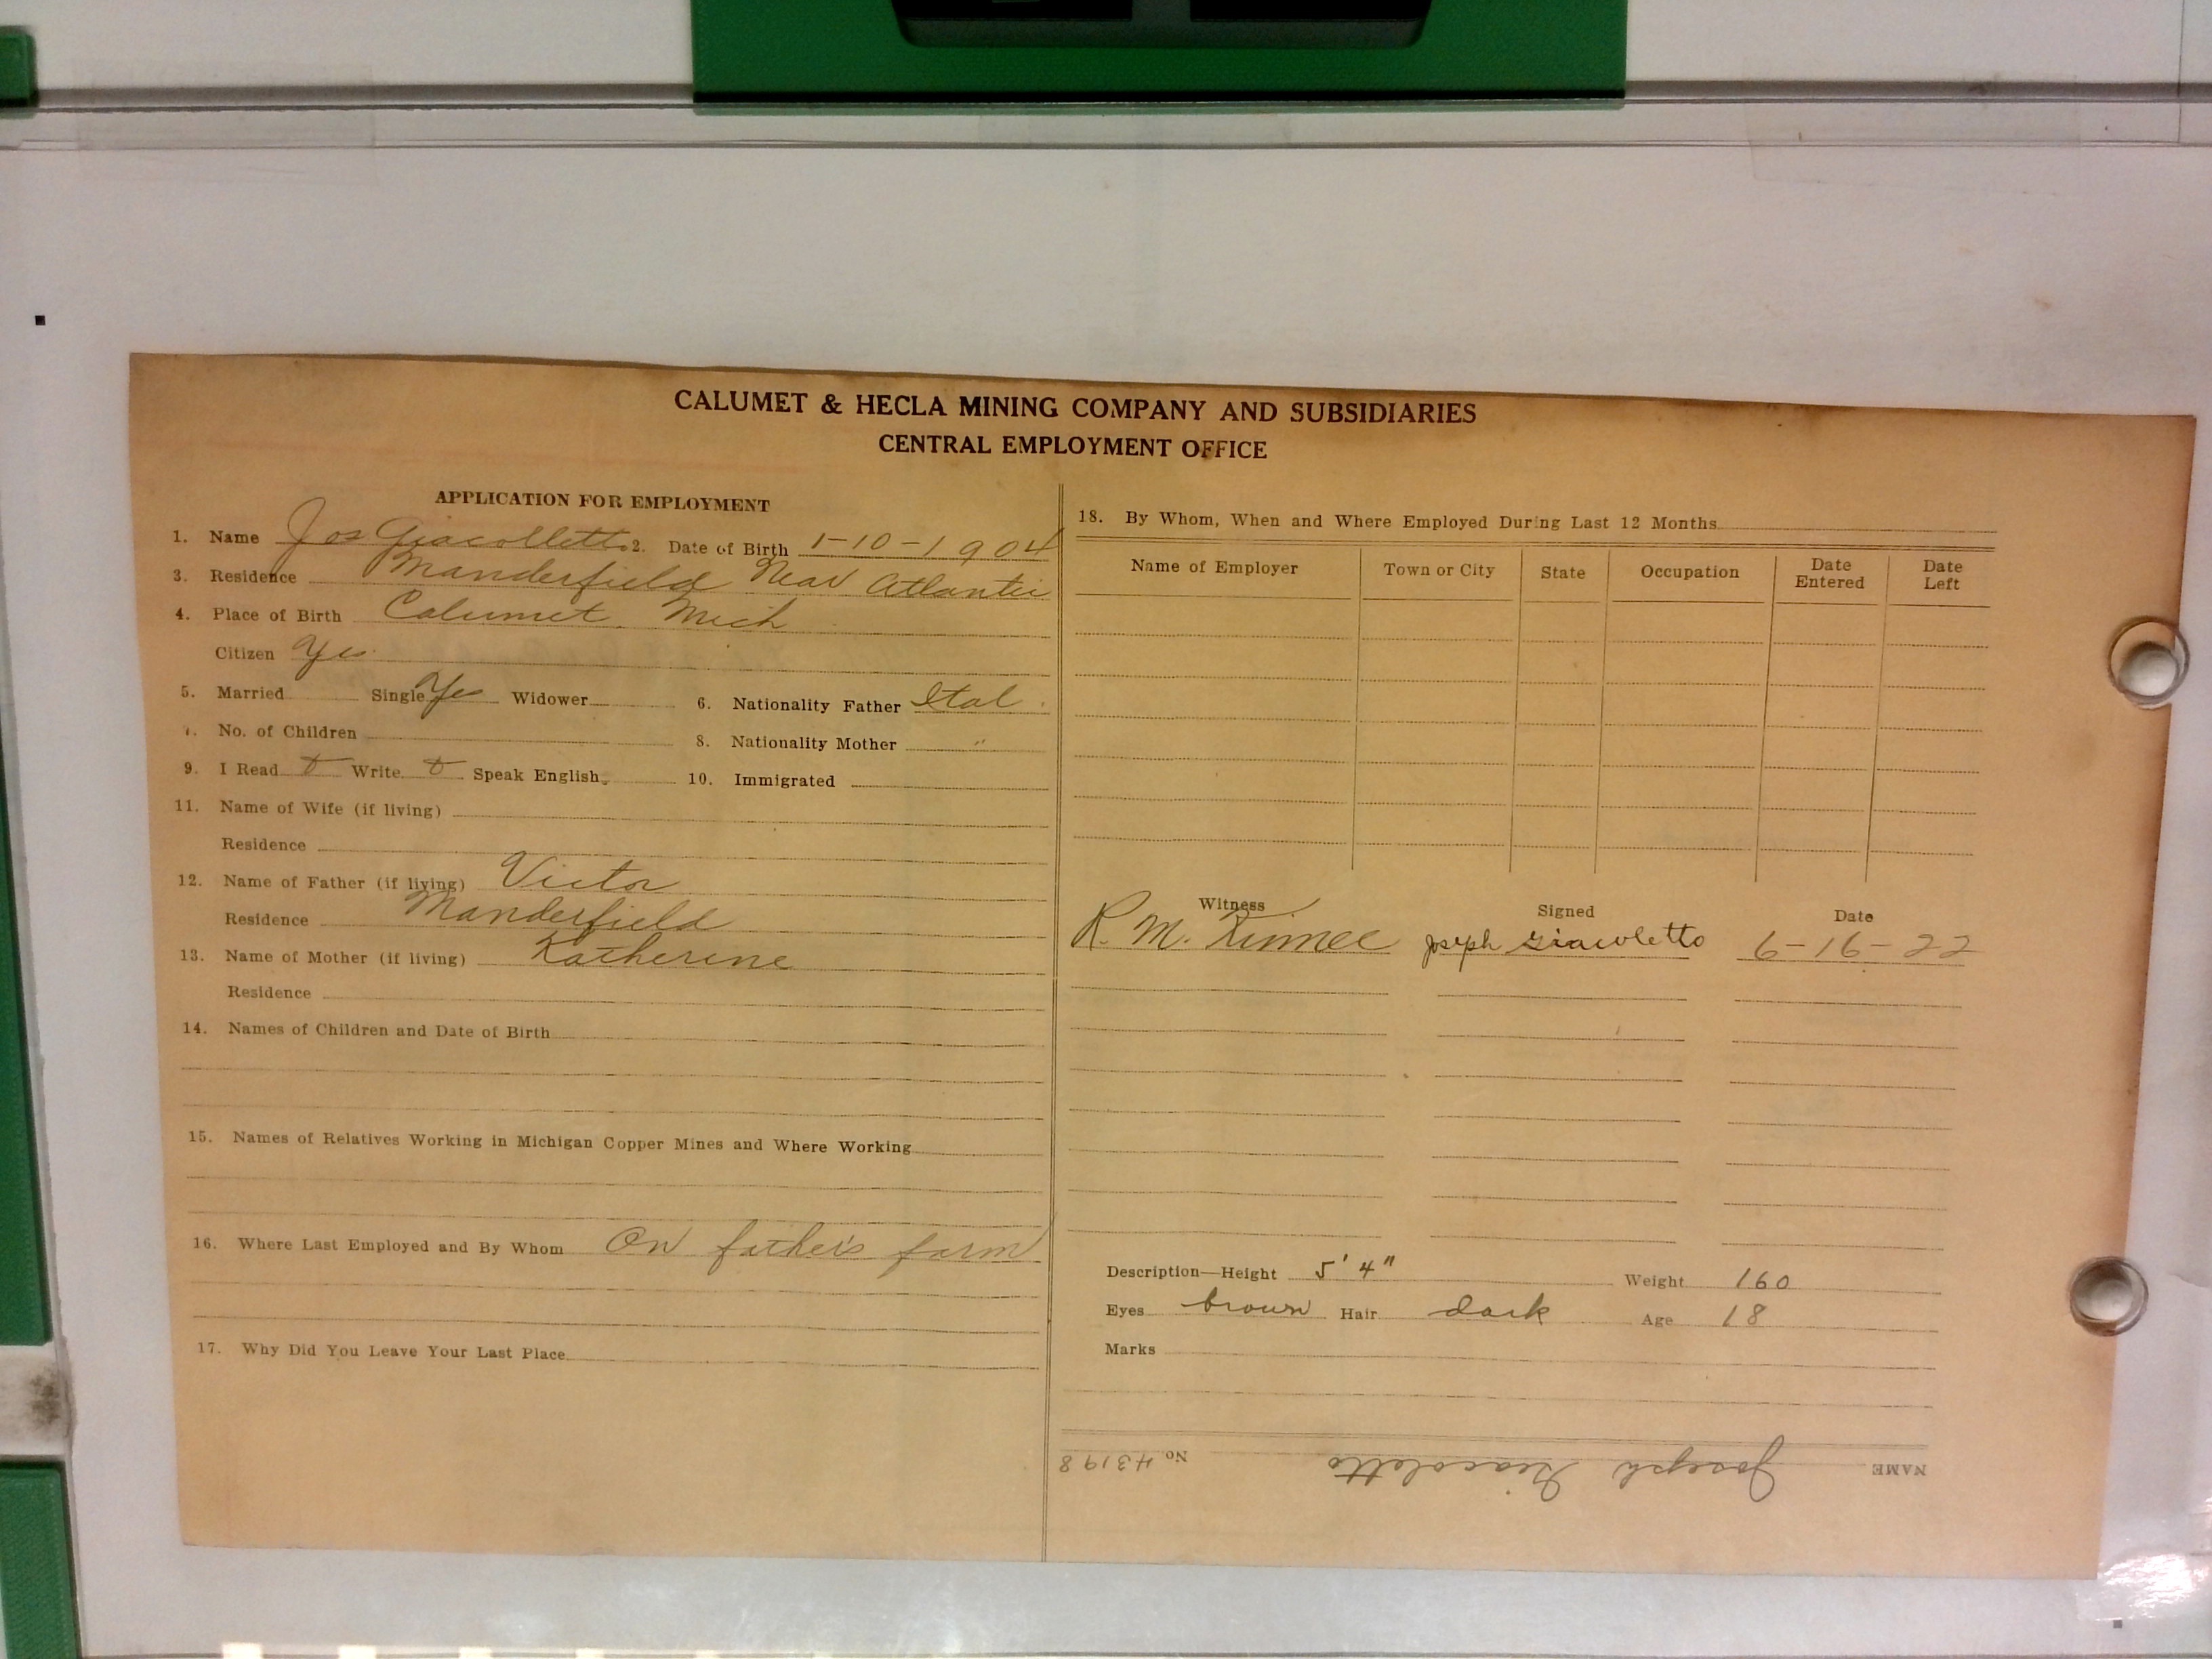 CALUMET & HECLA MINING COMPANY AND SUBSIDIARIES
CENTRAL EMPLOYMENT OFFICE
APPLICATION FOR EMPLOYMENT
1. Name Jos Giacolletto 2. Date of Birth 1-10-1904
3. Residence Manderfield Near Atlantic
4. Place of Birth Calumet. Mich
Citizen Yes
5. Married Single Yes Widower 6. Nationality Father Ital.
7. No. of Children 8. Nationality Mother "
9. I Read Write Speak English 10. Immigrated
11. Name of Wife (if living)
Residence
12. Name of Father (if living) Victor
Residence Manderfield
13. Name of Mother (if living) Katherine
Residence
14. Names of Children and Date of Birth
15. Names of Relatives Working in Michigan Copper Mines and Where Working
16. Where Last Employed and By Whom On father's farm
17. Why Did You Leave Your Last Place
18. By Whom, When and Where Employed During Last 12 Months
Name of Employer Town or City State Occupation Date Entered Date Left
Witness Signed Date
R. M. Kinnee Joseph Giacoletto 6-16-22
Description—Height 5' 4" Weight 160
Eyes brown Hair dark Age 18
Marks
NAME Joseph Giacoletto No. 43198